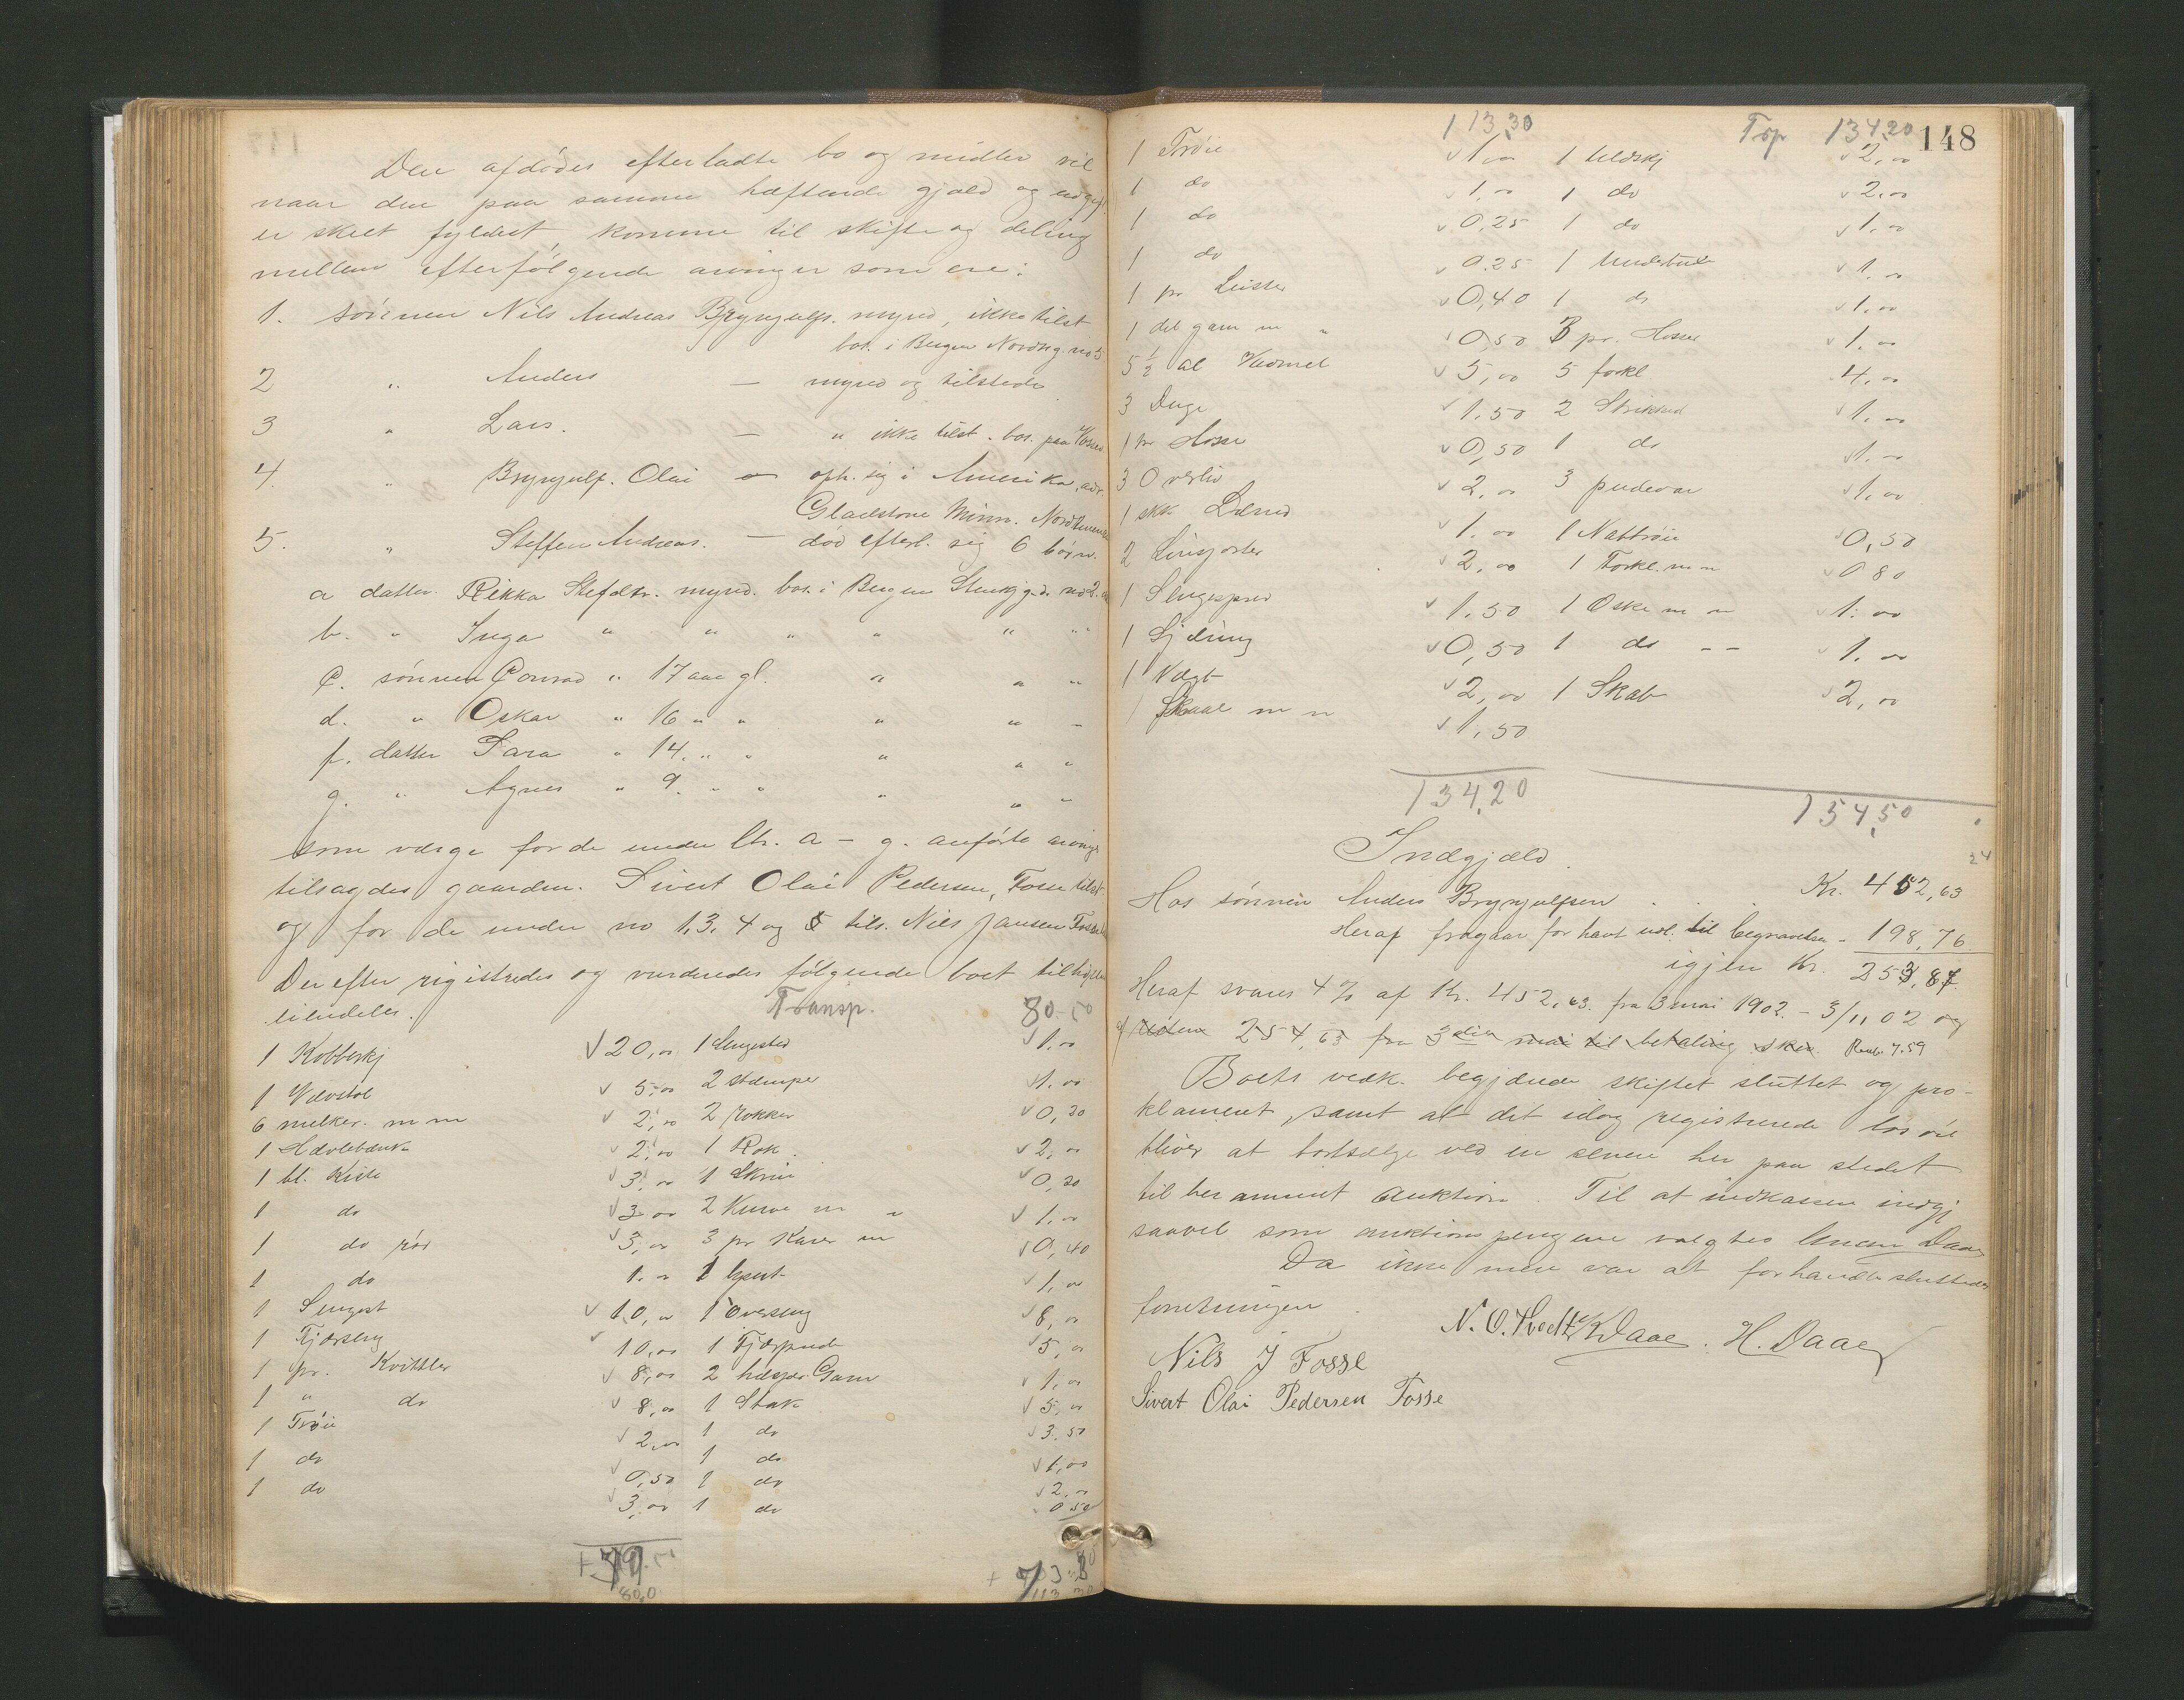 Den afdødes efterladte bo og midler vil
naar den paa samme heftende gjæld og udgift
er skeet fyldest, komme til skifte og deling
mellem efterfølgende arvinger som ere:
1. sønnen Nils Andreas Brynjulfs. mynd, ikke tilst
bos. i Bergen Nordng. no 5
2 " Anders — mynd og tilstede
3 " Lars. — " ikke tilst. bos. paa Vosse
4. " Brynjulf. Olai — oph. sig i Amerika, adr.
Gladstone Minn. Nordamerika
5. " Steffen Andreas. — død efterl. sig 6 børn.
a datter. Rikka Stefdtr. mynd. bos. i Bergen no 2.
b. " Inga " " " " " "
c. sønnen Conrad " 17 aar gl. " " "
d. " Oskar " 16 " " " " "
f. datter Sara " 14. " " " " "
g. " Agnes " 9. " " " " "
som værge for de under ltr. a – g. anførte arvinge
tilsagdes gaardm. Sivert Olai Pedersen, Fosse tilst.
og for de under no 1, 3, 4 og 5 tils. Nils Jansen Fosse
Derefter registredes og vurderedes følgende boet tilhørende
eiendele. Transp. 80.50
1 Kobberkj 20,00 1 Sengested 1.00
1 Vævstol 5,00 2 stamper 1.00
6 melker. m m 2,00 2 rokker 0,20
1 Høvlebænk 2,00 1 Rok. 2,00
1 bl. Kiste 3,00 1 Skrin 0,20
1 do 3,00 2 Kurve m " 1.00
1 do rød 3,00 3 pr Karer m 0,40
1 do 1.00 1 1,00
1 Sengest 10,00 1 overseng 8,00
1 Fjærseng 10,00 1 Fjærpude 5,00
1 pr. Kvittler 8,00 2 hesper Garn 1,00
1 " do 8,00 1 Stak 5,00
1 Trøie 2,00 1 do 3.50
1 do 0,50 1 do 1,00
1 do 3,00 1 do 2,00
1 do 0 50
148
113,30 Tsp 134,20
1 Trøie 1,00 1 Uldskj 2,00
1 do 1,00 1 do 2,00
1 do 0,25 1 do 1,00
1 do 0,25 1 1,00
1 pr Leister 0,40 1 do 1,00
1 del garn m " 0,50 3 pr. Hoser 1,00
5 1/2 al Vadmel 5,00 5 forkl 4,00
3 Duge 1.50 2 1,00
1 pr Hoser 0,50 1 do 1.00
3 Overliv 2,00 3 pudevar 1,00
1 stk Lærred 1.00 1 Nattrøie 0,50
2 Linskjorter 2,00 1 Forkl. m m 0 80
1 Sengespred 1.50 1 Æske m m 1.00
1 0,50 1 do – – 1.00
1 Vægt 2,00 1 Skab 2,00
1 Skaal m m 1,50
134,20 154,50
Indgjæld.
24
Hos sønnen Anders Brynjulfsen . . . Kr. 452,63
Heraf fragaar for havt udl. til begravelse - 198,76
igjen Kr. 253,87
Heraf svares 4 % af Kr. 452,63 fra 3 mai 1902 – 3/11 02 og
af 254,63 fra 3die mai til betaling sker. Rente 7.59
Boets vedk. begjærede skiftet sluttet og pro-
klameret, samt at det idag registrerede løsøre
bliver at bortsælge ved en senere her paa stedet
til berammet auktion. Til at indkassere indgj
saavel som auktionspengene valgtes lensm Daae
Da ikke mere var at forhandle sluttedes
forretningen.
N. O. Tvedt K Daae. H. Daae
Nils J Fosse
Sivert Olai Pedersen Fosse